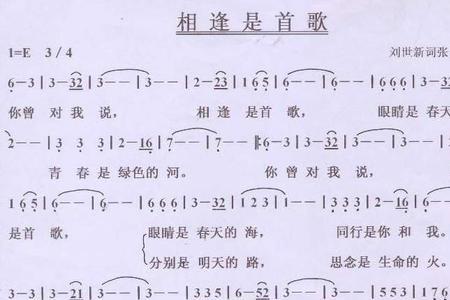 相逢是首歌
1=E 3/4 刘世新词张
6-3|3-32|3--|3--|2-23|1 6 5|6--|6--|6 6 6|3-32
你曾 对我 说， 相 逢 是首 歌， 眼睛是 春天
2--|3 3 3|2-16|7--|7--|:6-3|3-32|3--|3--
青 春 是 绿色的 河。 你 曾 对我 说，
1 6 5|6--|6--|6 6 6|3-32|1 2 3|1--|3-3|2-16|6
是首 歌， 眼睛是 春天的 海， 同行是你 和 我。
分别是 明天的 路， 思念是 生命的 火。
3--|3-21|3--|3--